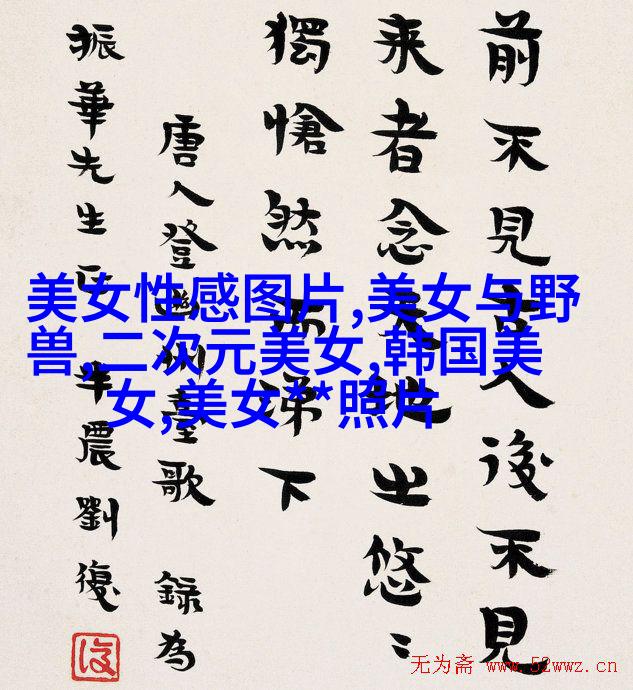 前不見古人後不見
来者念天地之悠〻
獨愴然而涕下
唐人登幽州臺歌 錄為
振華先生正 半農劉復
復
美女性感图片,美女与野
兽,二次元美女,韩国美
女,美女**照片
无为斋 www.52wwz.cn